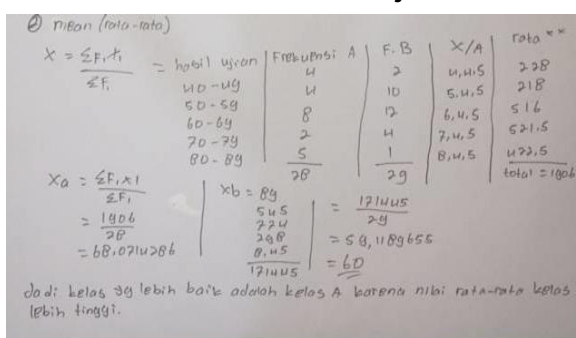 ② mean (rata-rata)
X = ΣF₁X₁ / ΣF₁
= hasil ujian | Frekuensi A | F.B | X/A | rata **
40-49 | 4 | 2 | 4,4.5 | 228
50-59 | 4 | 10 | 5.4,5 | 218
60-69 | 8 | 12 | 6,4.5 | 516
70-79 | 2 | 4 | 7,4,5 | 521.5
80-89 | 5 | 1 | 8,4,5 | 422,5
28 | 29 | total = 1906
Xa = ΣF₁X1 / ΣF₁
= 1906 / 28
= 68,0714286
Xb = 89
545
774
298
8.45
171445
= 171445 / 29
= 59,1189655
= 60
Jadi kelas yg lebih baik adalah kelas A karena nilai rata-rata kelas
lebih tinggi.